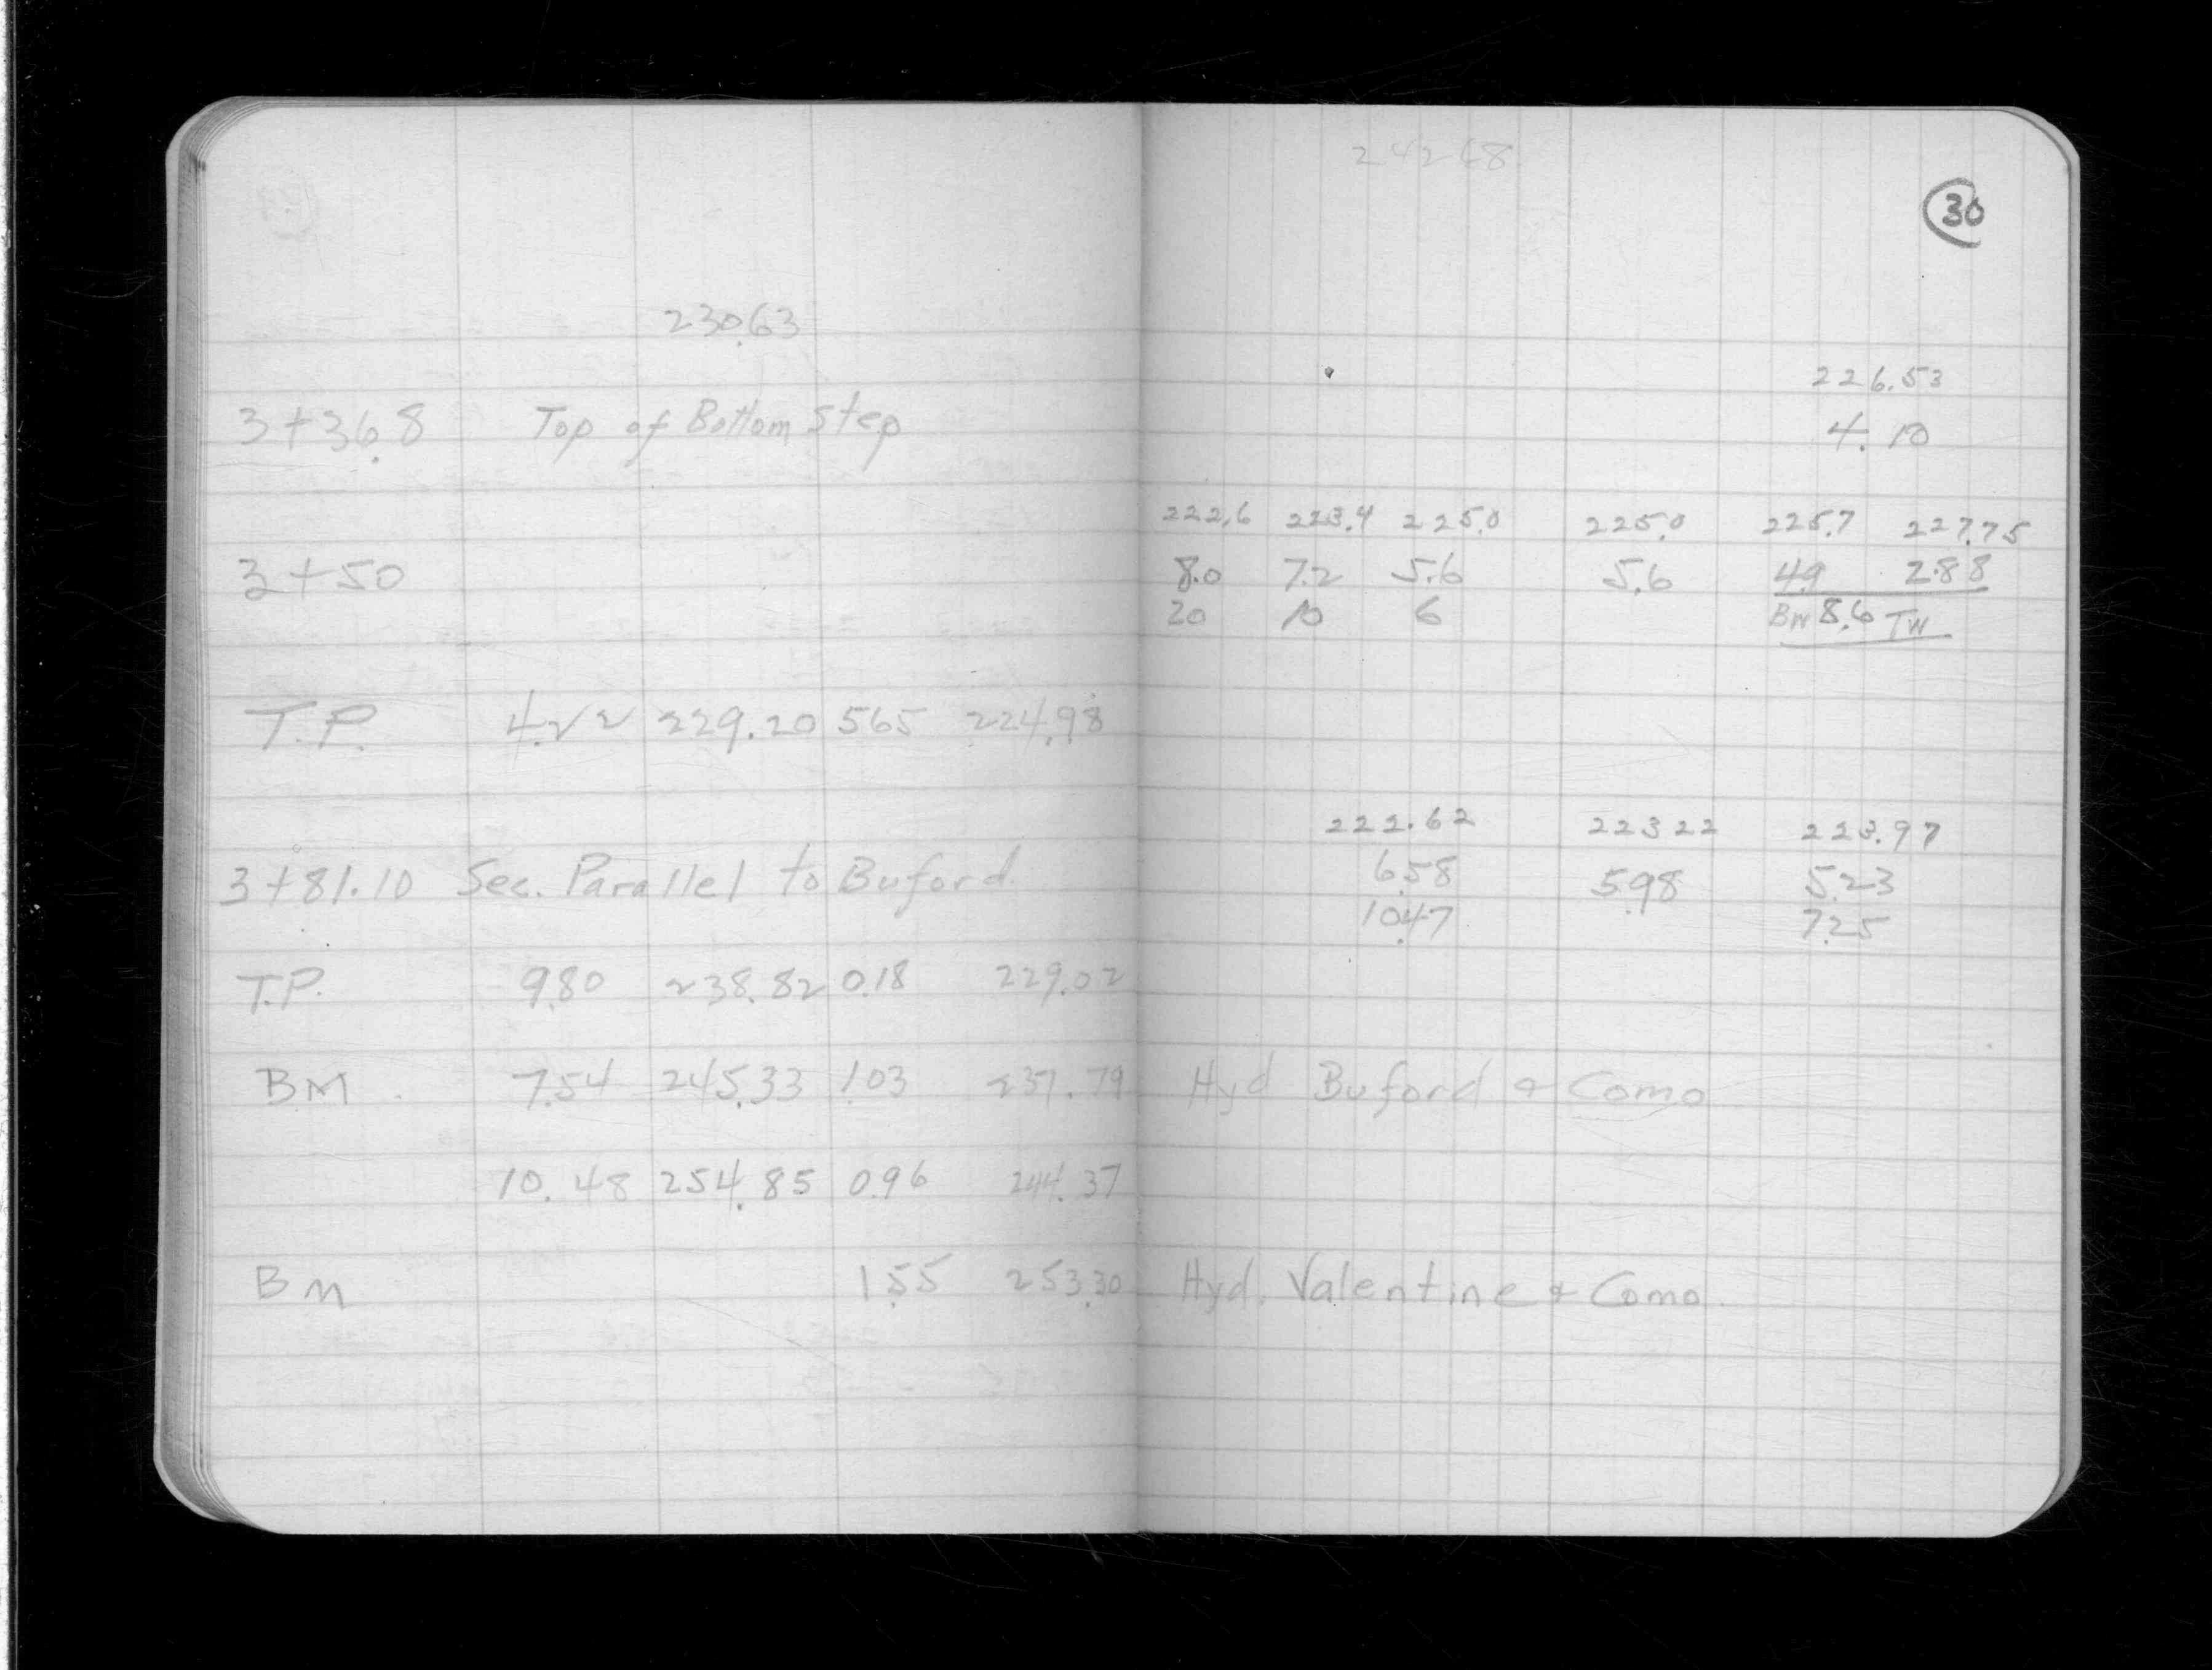 242 68
30
230.63
226.53
3+36.8 Top of Bottom Step 4.10
222.6 223.4 225.0 225.0 225.7 227.75
3+50 8.0 7.2 5.6 5.6 4.9 2.88
20 10 6 BW 8.6 TW
T.P. 4.22 229.20 565 224.98
222.62 223 22 223.97
3+81.10 Sec. Parallel to Buford 6.58 5.98 5.23
10.47 7.25
T.P. 9.80 238.82 0.18 229.02
BM 7.54 245.33 1.03 237.79 Hyd Buford & Como
10.48 254.85 0.96 244.37
BM 1.55 253.30 Hyd. Valentine & Como.